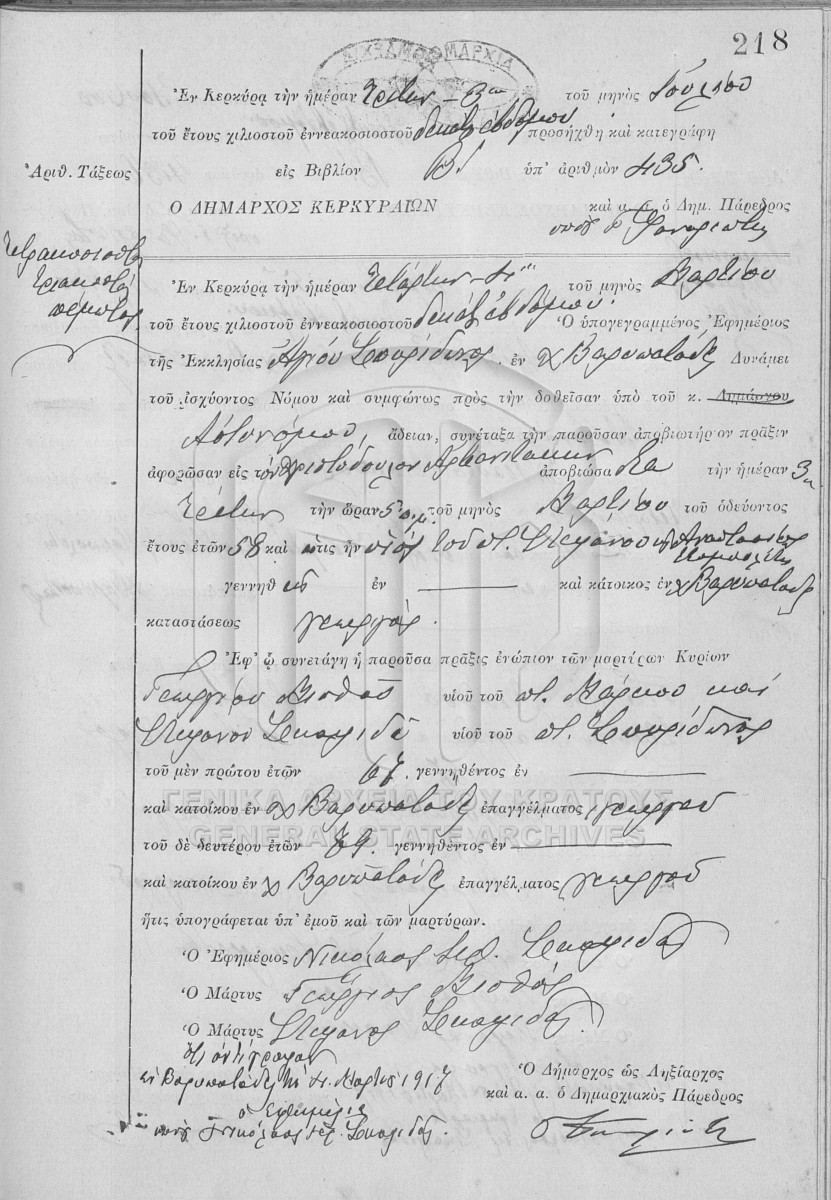 218
ΔΗΜΑΡΧΙΑ
Ἐν Κερκύρᾳ τὴν ἡμέραν Τρίτην - 3ην τοῦ μηνὸς Ἰουλίου
τοῦ ἔτους χιλιοστοῦ ἐννεακοσιοστοῦ δεκάτου ἑβδόμου προσήχθη καὶ κατεγράφη
Ἀριθ. Τάξεως εἰς Βιβλίον Β' ὑπ' ἀριθμὸν 435.
Ο ΔΗΜΑΡΧΟΣ ΚΕΡΚΥΡΑΙΩΝ καὶ α. α. ὁ Δημ. Πάρεδρος
τετρακοσιοστὸς
τριακοστὸς
πέμπτος
Ἐν Κερκύρᾳ τὴν ἡμέραν Τετάρτην - 4ην τοῦ μηνὸς Μαρτίου
τοῦ ἔτους χιλιοστοῦ ἐννεακοσιοστοῦ δεκάτου ἑβδόμου Ὁ ὑπογεγραμμένος Ἐφημέριος
τῆς Ἐκκλησίας Ἁγίου Σπυρίδωνος ἐν χ Βαρυπατάδες Δυνάμει
τοῦ ἰσχύοντος Νόμου καὶ συμφώνως πρὸς τὴν δοθεῖσαν ὑπὸ τοῦ κ. Δημάρχου
Ἀστυνόμου, ἄδειαν, συνέταξα τὴν παροῦσαν ἀποβιωτήριον πρᾶξιν
ἀφορῶσαν εἰς τὸν Χριστόδουλον Ἀρβανιτάκην ἀποβιώσαντα τὴν ἡμέραν 3η
Τρίτην τὴν ὥραν 5 π.μ. τοῦ μηνὸς Μαρτίου τοῦ ὁδεύοντος
ἔτους ἐτῶν 58 καὶ ὅτις ἦν υἱὸς τοῦ ποτ. Στεφάνου καὶ Ἀναστασίας
γεννηθεὶς ἐν καὶ κάτοικος ἐν χ Βαρυπατάδες
καταστάσεως γεωργός.
Ἐφ' ᾧ συνετάγη ἡ παροῦσα πρᾶξις ἐνώπιον τῶν μαρτύρων Κυρίων
Γεωργίου Βλοθᾶς υἱοῦ τοῦ ποτ. Μάρκου καὶ
Στέφανου Σκολιδὲ υἱοῦ τοῦ ποτ. Σπυρίδωνος
τοῦ μὲν πρώτου ἐτῶν 67. γεννηθέντος ἐν
καὶ κατοίκου ἐν χ Βαρυπατάδες ἐπαγγέλματος γεωργοῦ
τοῦ δὲ δευτέρου ἐτῶν 79. γεννηθέντος ἐν
καὶ κατοίκου ἐν χ Βαρυπατάδες ἐπαγγέλματος γεωργοῦ
ἥτις ὑπογράφεται ὑπ' ἐμοῦ καὶ τῶν μαρτύρων.
Ὁ Ἐφημέριος Νικόλαος ἱερ.
Ὁ Μάρτυς Γεώργιος
Ὁ Μάρτυς Στέφανος
διὰ ἀντίγραφον
ἐν Βαρυπατάδες τῇ 4 Μαρτίου 1917
Ὁ Δήμαρχος ὡς Ληξίαρχος
καὶ α. α. ὁ Δημαρχιακὸς Πάρεδρος
ὁ Ἐφημέριος
Νικόλαος ἱερ.
ΓΕΝΙΚΑ ΑΡΧΕΙΑ ΤΟΥ ΚΡΑΤΟΥΣ
GENERAL STATE ARCHIVES